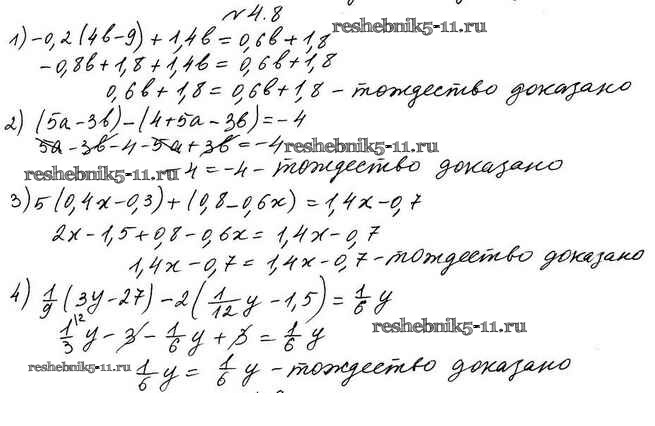 №4.8
reshebnik5-11.ru
1) -0,2(4в-9)+1,4в=0,6в+1,8
-0,8в+1,8+1,4в=0,6в+1,8
0,6в+1,8=0,6в+1,8 - тождество доказано
2) (5а-3в)-(4+5а-3в)=-4
5а-3в-4-5а+3в=-4
reshebnik5-11.ru
reshebnik5-11.ru
4=-4 - тождество доказано
3) 5(0,4x-0,3)+(0,8-0,6x)=1,4x-0,7
2x-1,5+0,8-0,6x=1,4x-0,7
1,4x-0,7=1,4x-0,7 - тождество доказано
4) 1/9(3y-27)-2(1/12y-1,5)=1/6y
1/3\2y-3-1/6y+3=1/6y
reshebnik5-11.ru
reshebnik5-11.ru
1/6y=1/6y - тождество доказано